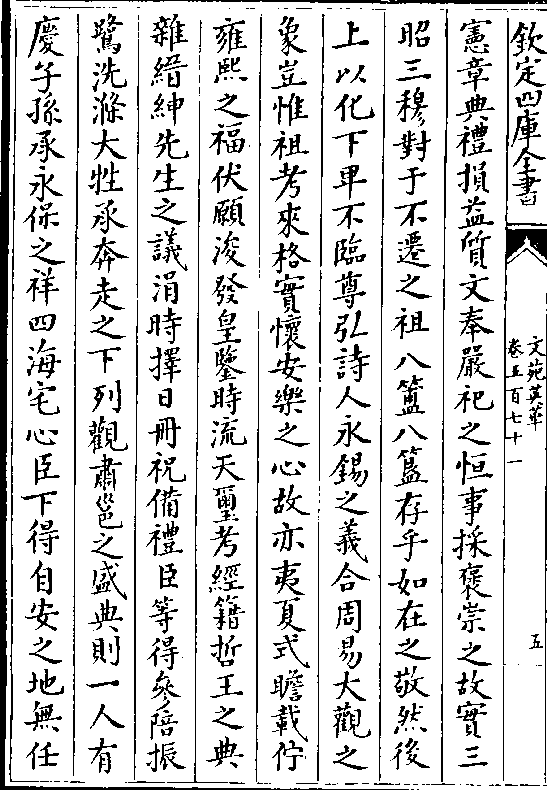 欽定四庫全書
文苑英華
卷五百七十一
五
憲章典禮損益質文奉嚴祀之恒事採褒崇之故實三
昭三穆對于不遷之祖八簠八簋存乎如在之敬然後
上以化下卑不臨尊弘詩人永錫之義合周易大觀之
象豈惟祖考來格實懷安樂之心故亦夷夏式瞻載佇
雍熙之福伏願浚發皇鑒時流天璽考經籍哲王之典
雜縉紳先生之議涓時擇日冊祝備禮臣等得參陪振
鷺洗滌大牲承奔走之下列觀肅邕之盛典則一人有
慶子孫承永保之祥四海宅心臣下得自安之地無任